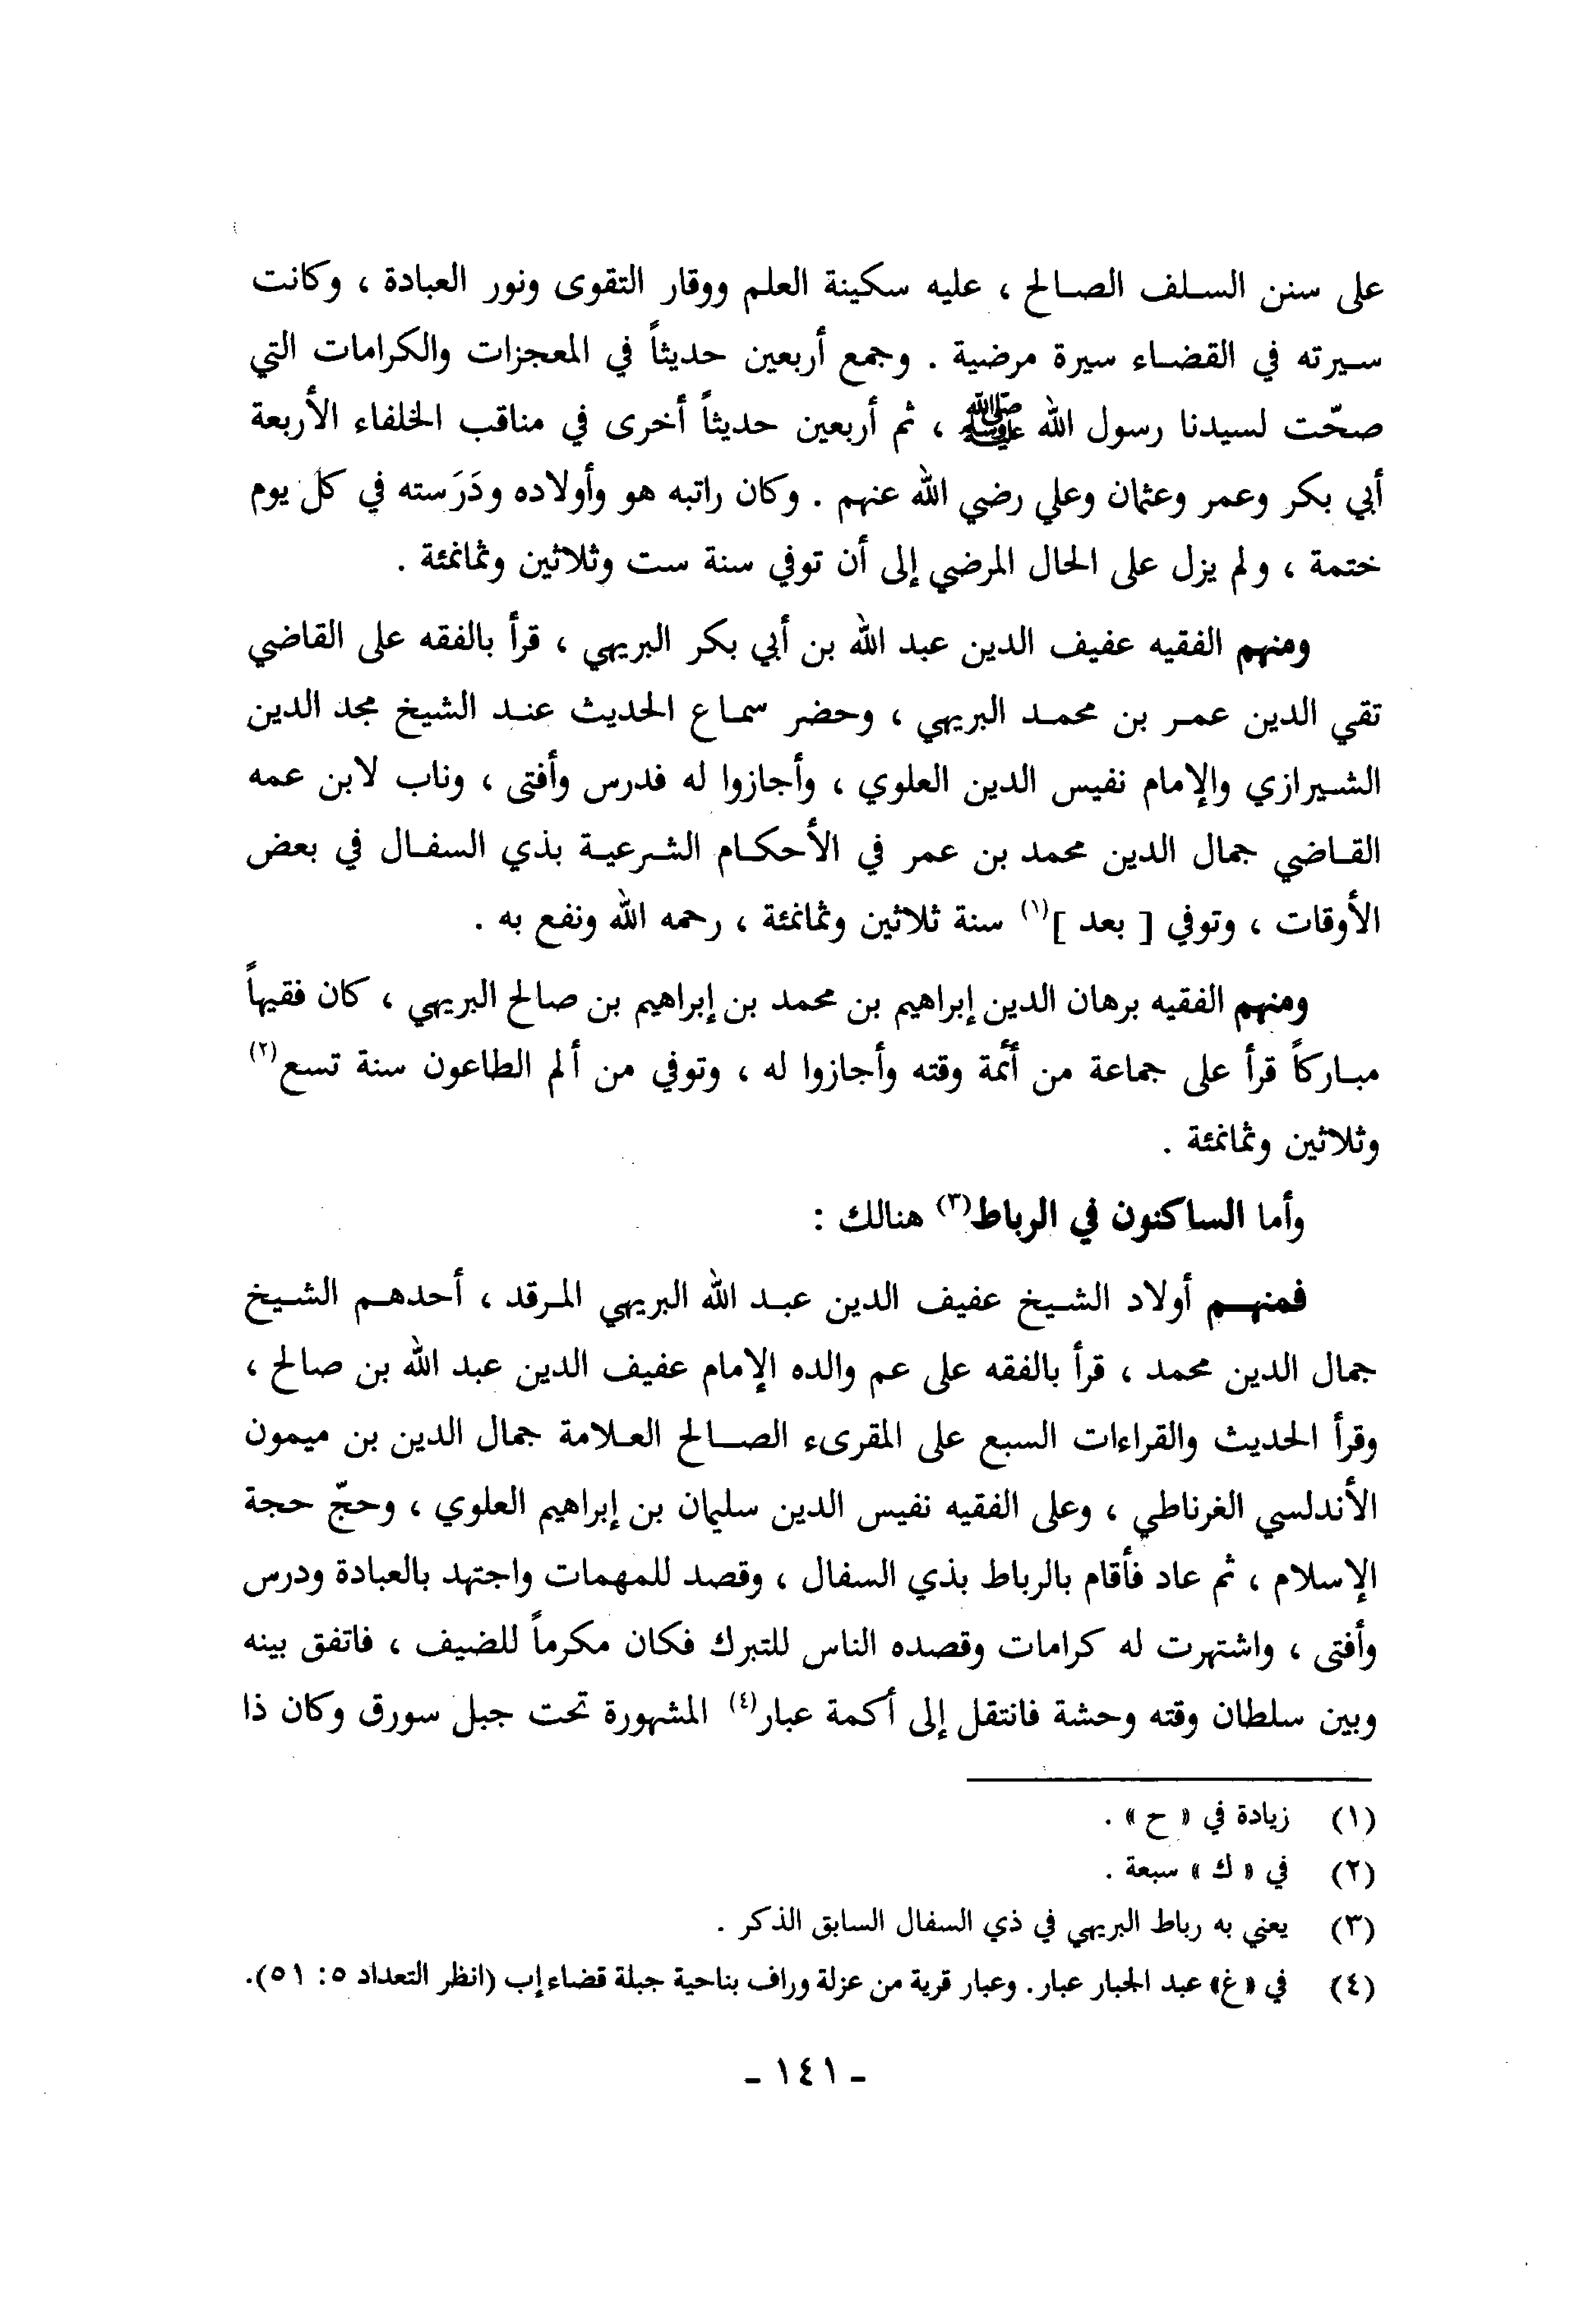 على سنن السلف الصالح ، عليه سكينة العلم ووقار التقوى ونور العبادة ، وكانت
سيرته في القضاء سيرة مرضية . وجمع أربعين حديثاً في المعجزات والكرامات التي
صحّت لسيدنا رسول الله ﷺ ، ثم أربعين حديثاً أخرى في مناقب الخلفاء الأربعة
أبي بكر وعمر وعثمان وعلي رضي الله عنهم . وكان راتبه هو وأولاده ودَرَسته في كل يوم
ختمة ، ولم يزل على الحال المرضي إلى أن توفي سنة ست وثلاثين وثمانمئة .
ومنهم الفقيه عفيف الدين عبد الله بن أبي بكر البريهي ، قرأ بالفقه على القاضي
تقي الدين عمر بن محمد البريهي ، وحضر سماع الحديث عند الشيخ مجد الدين
الشيرازي والإمام نفيس الدين العلوي ، وأجازوا له فدرس وأفتى ، وناب لابن عمه
القاضي جمال الدين محمد بن عمر في الأحكام الشرعية بذي السفال في بعض
الأوقات ، وتوفي [ بعد ](١) سنة ثلاثين وثمانمئة ، رحمه الله ونفع به .
ومنهم الفقيه برهان الدين إبراهيم بن محمد بن إبراهيم بن صالح البريهي ، كان فقيهاً
مباركاً قرأ على جماعة من أئمة وقته وأجازوا له ، وتوفي من ألم الطاعون سنة تسع(٢)
وثلاثين وثمانمئة .
وأما الساكنون في الرباط(٣) هنالك :
فمنهم أولاد الشيخ عفيف الدين عبد الله البريهي المرقد ، أحدهم الشيخ
جمال الدين محمد ، قرأ بالفقه على عم والده الإمام عفيف الدين عبد الله بن صالح ،
وقرأ الحديث والقراءات السبع على المقرىء الصالح العلامة جمال الدين بن ميمون
الأندلسي الغرناطي ، وعلى الفقيه نفيس الدين سليمان بن إبراهيم العلوي ، وحجّ حجة
الإسلام ، ثم عاد فأقام بالرباط بذي السفال ، وقصد للمهمات واجتهد بالعبادة ودرس
وأفتى ، واشتهرت له كرامات وقصده الناس للتبرك فكان مكرماً للضيف ، فاتفق بينه
وبين سلطان وقته وحشة فانتقل إلى أكمة عبار(٤) المشهورة تحت جبل سورق وكان ذا
(١) زيادة في « ح » .
(٢) في « ك » سبعة .
(٣) يعني به رباط البريهي في ذي السفال السابق الذكر .
(٤) في «غ» عبد الجبار عبار. وعبار قرية من عزلة وراف بناحية جبلة قضاء إب (انظر التعداد ٥: ٥١).
- ١٤١ -